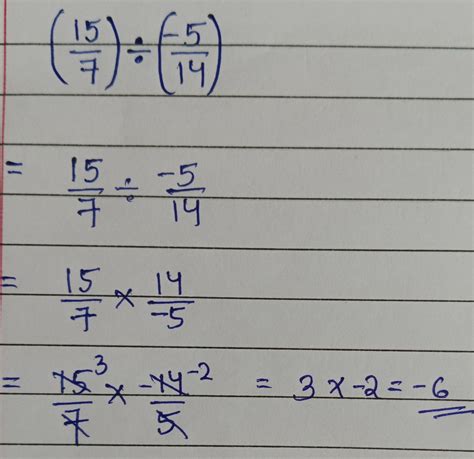 (15/7) ÷ (-5/14)
= 15/7 ÷ -5/14
= 15/7 × 14/-5
= 15³/7 × -14⁻²/5 = 3 × -2 = -6